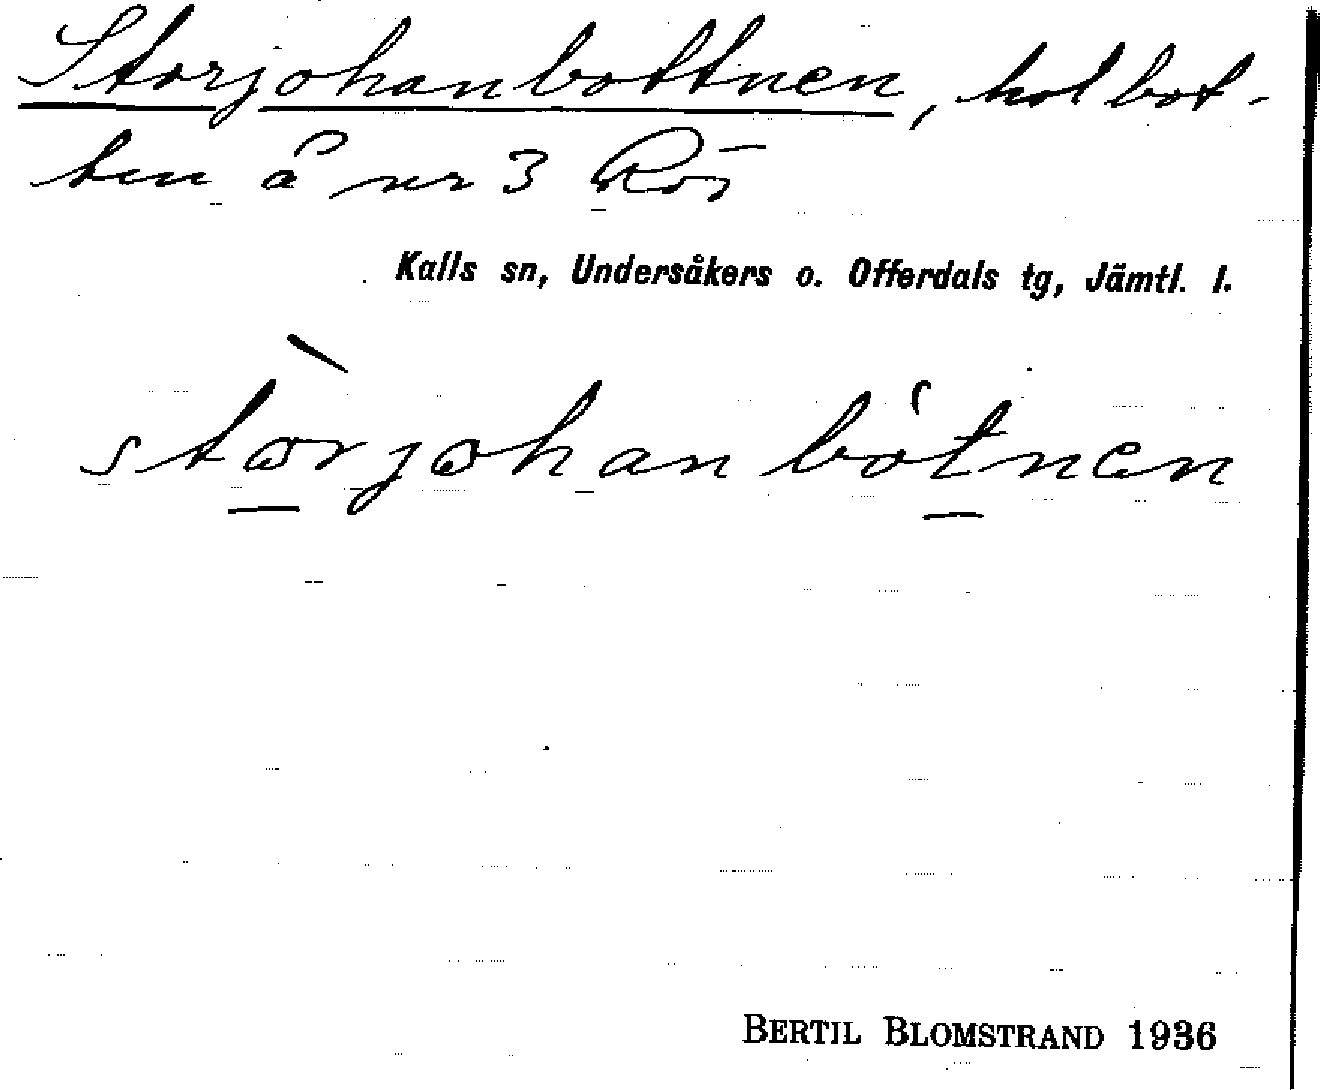 Storjohanbottnen, kolbot-
ten å nr 3 Rö
Kalls sn, Undersåkers o. Offerdals tg, Jämtl. l.
stòrjohanbótnen
BERTIL BLOMSTRAND 1936